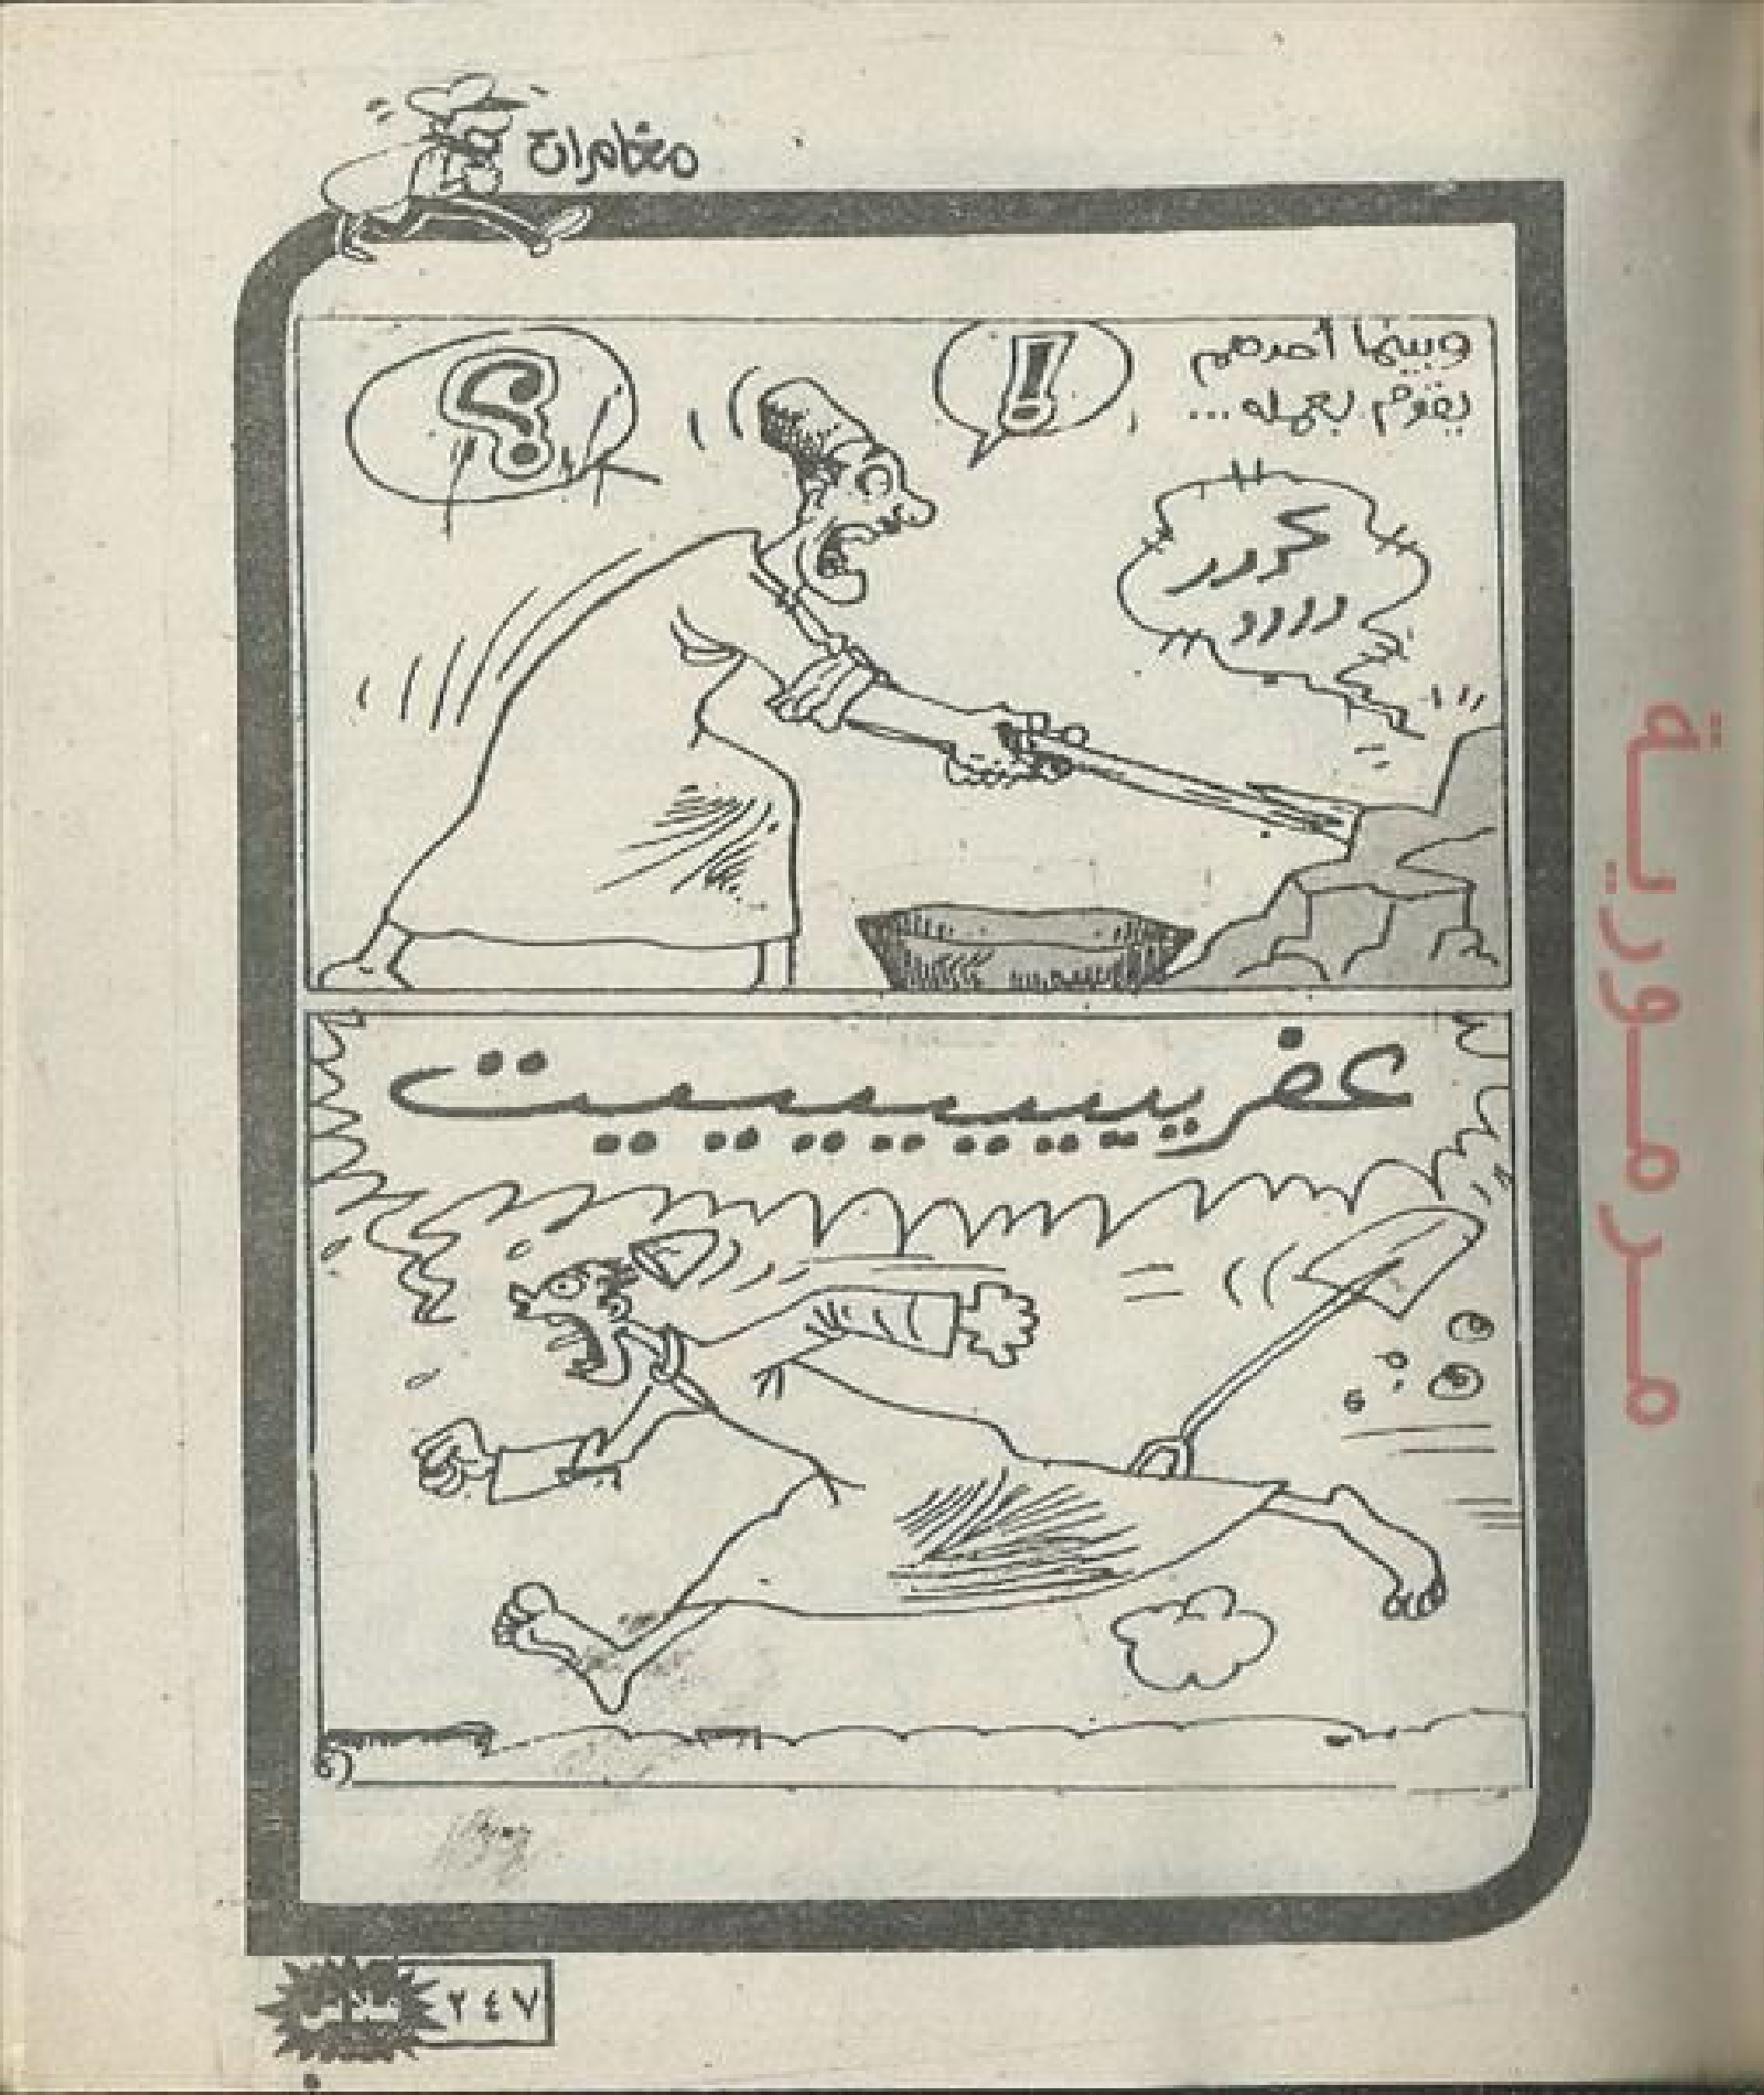 مغامرات
وبينما أحدهم
يقوم بعمله...
!
؟
كررر
رررر
عفريييييييت
مرمورية
٢٤٧